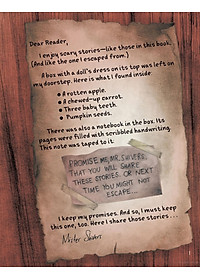 Dear Reader,
I enjoy scary stories—like those in this book.
(And like the one I escaped from.)
A box with a doll's dress on its top was left on
my doorstep. Here is what I found inside:
• A rotten apple.
• A chewed-up carrot.
• Three baby teeth
• Pumpkin seeds.
There was also a notebook in the box. Its
pages were filled with scribbled handwriting.
This note was taped to it:
PROMISE ME, MR. SHIVERS,
THAT YOU WILL SHARE
THESE STORIES. OR NEXT
TIME YOU MIGHT NOT
ESCAPE...
I keep my promises. And so, I must keep
this one, too. Here I share those stories...
Mister Shivers